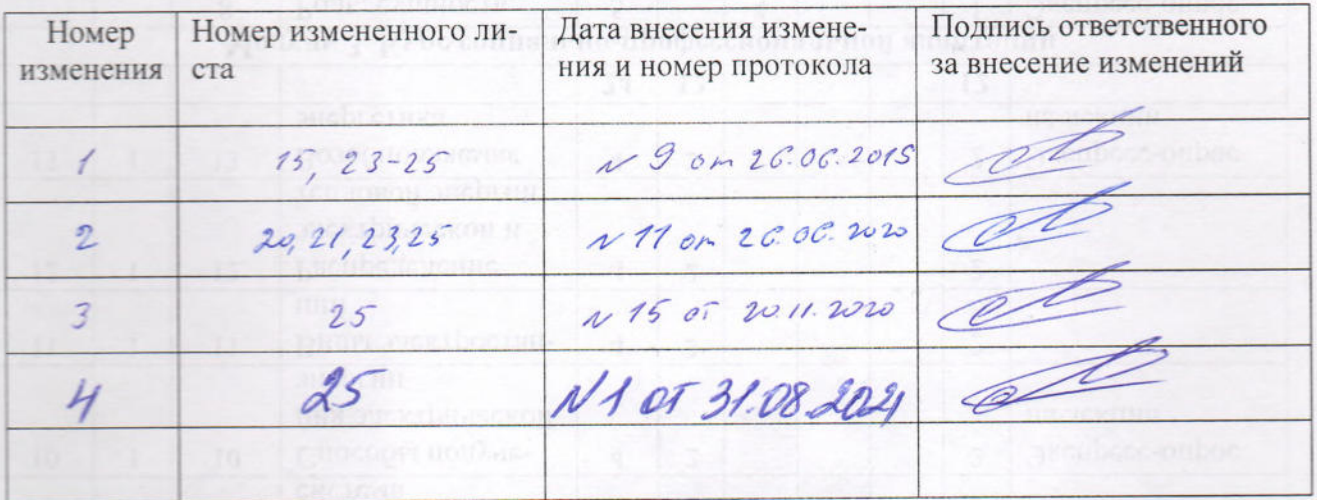 Номер изменения
Номер измененного ли-
ста
Дата внесения измене-
ния и номер протокола
Подпись ответственного
за внесение изменений
1 15, 23-25 N 9 от 26.06.2015
2 20, 21, 23, 25 N 11 от 26.06.2020
3 25 N 15 от 20.11.2020
4 25 N 1 от 31.08.2021